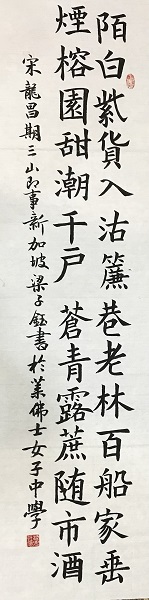 陌白紫貨入沽簾巷老林百船家垂
煙榕園甜潮千戶蒼青露蔗随市酒
宋龍昌期三山即事新加坡梁子鈺書於莱佛士女子中學